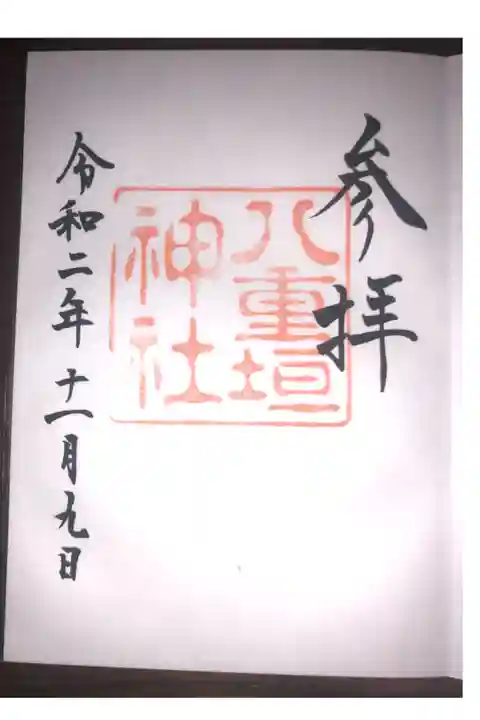 参拝
八重垣
神社
令和二年十一月九日